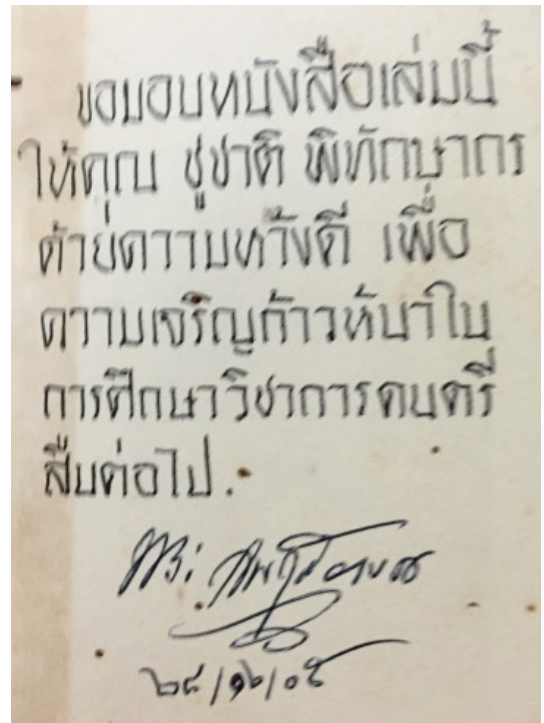 ขอมอบหนังสือเล่มนี้
ให้คุณ ชูชาติ พิทักษากร
ด้วยความหวังดี เพื่อ
ความเจริญก้าวหน้าใน
การศึกษาวิชาการดนตรี
สืบต่อไป.